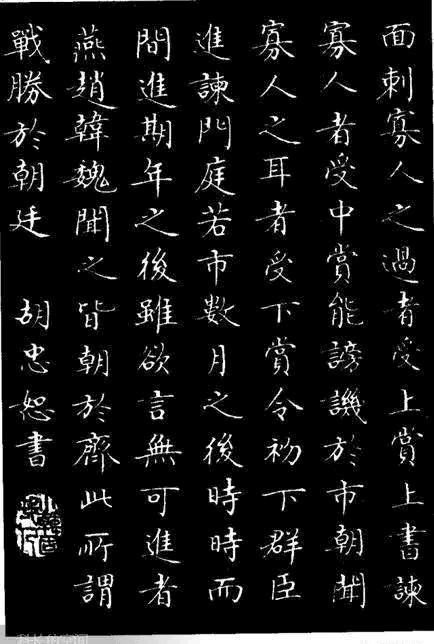 面刺寡人之過者受上賞上書諫
寡人者受中賞能謗譏於市朝聞
寡人之耳者受下賞令初下群臣
進諫門庭若市數月之後時時而
間進期年之後雖欲言無可進者
燕趙韓魏聞之皆朝於齊此所謂
戰勝於朝廷 胡忠恕書